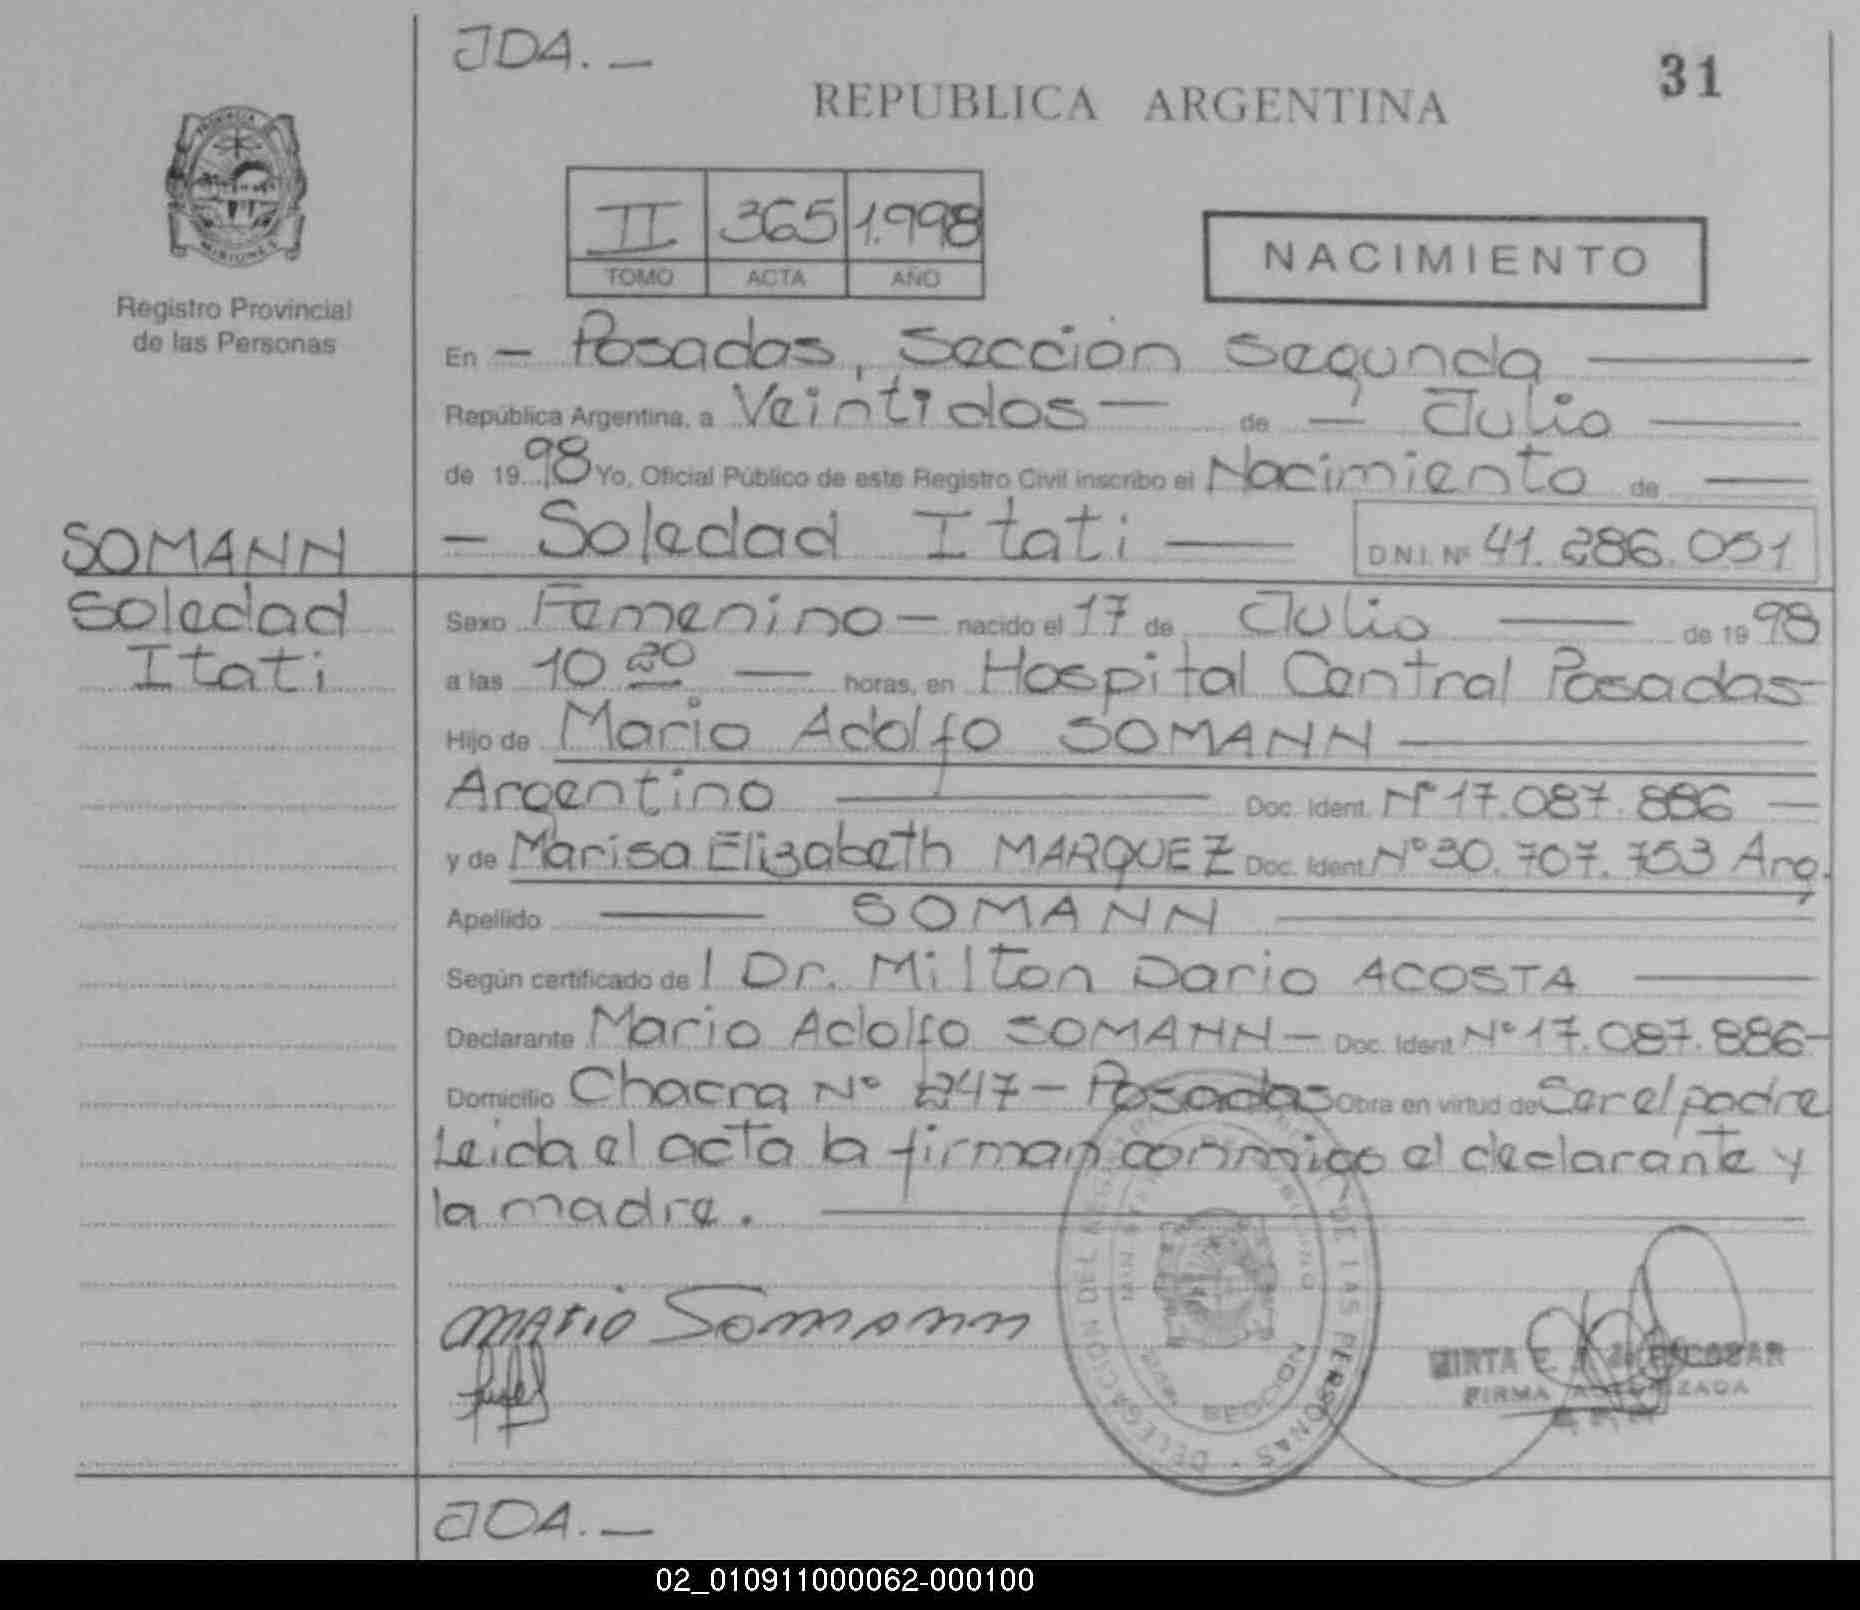 JDA.—
31
REPUBLICA ARGENTINA
II 365 1.998
TOMO ACTA AÑO
NACIMIENTO
MISIONES
Registro Provincial
de las Personas
En — Posadas, Sección Segunda —
República Argentina, a Veintidos — de — Julio —
de 1998 Yo, Oficial Público de este Registro Civil inscribo el Nacimiento de —
— Soledad Itati — D.N.I. Nº 41.286.051
SOMANN
Soledad
Itati
Sexo Femenino — nacido el 17 de Julio — de 1998
a las 10 20 — horas, en Hospital Central Posadas-
Hijo de Mario Adolfo SOMANN —
Argentino — Doc. Ident. Nº 17.087.886 —
y de Marisa Elizabeth MARQUEZ Doc. Ident. Nº 30.707.753 Arg.
Apellido — SOMANN —
Según certificado de l Dr. Milton Dario ACOSTA —
Declarante Mario Adolfo SOMANN — Doc. Ident. Nº 17.087.886-
Domicilio Chacra Nº 247 - Posadas Obra en virtud de Ser el padre
Leida el acta la firman conmigo el declarante y
la madre. —
MARIO Somann
DELEGACION DEL REGISTRO DE LAS PERSONAS
MIRTA E. de ESCOBAR
FIRMA AUTORIZADA
JDA.—
02_010911000062-000100